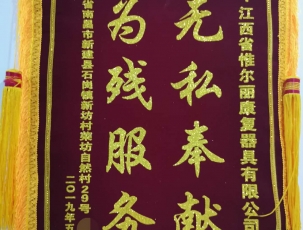 江西省惟尔丽康复器具有限公司
无私奉献
为残服务
省南昌市新建县石岗镇新坊村架坊自然村29号
二〇一九年五